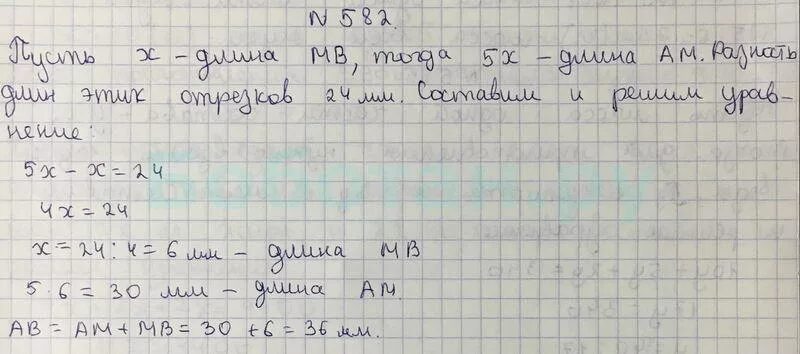 N 582.
Пусть x – длина MB, тогда 5x – длина AM. Разность
длин этих отрезков 24 мм. Составим и решим урав-
нение:
5x – x = 24
4x = 24
x = 24 : 4 = 6 мм – длина MB
5 · 6 = 30 мм – длина AM.
AB = AM + MB = 30 + 6 = 36 мм.